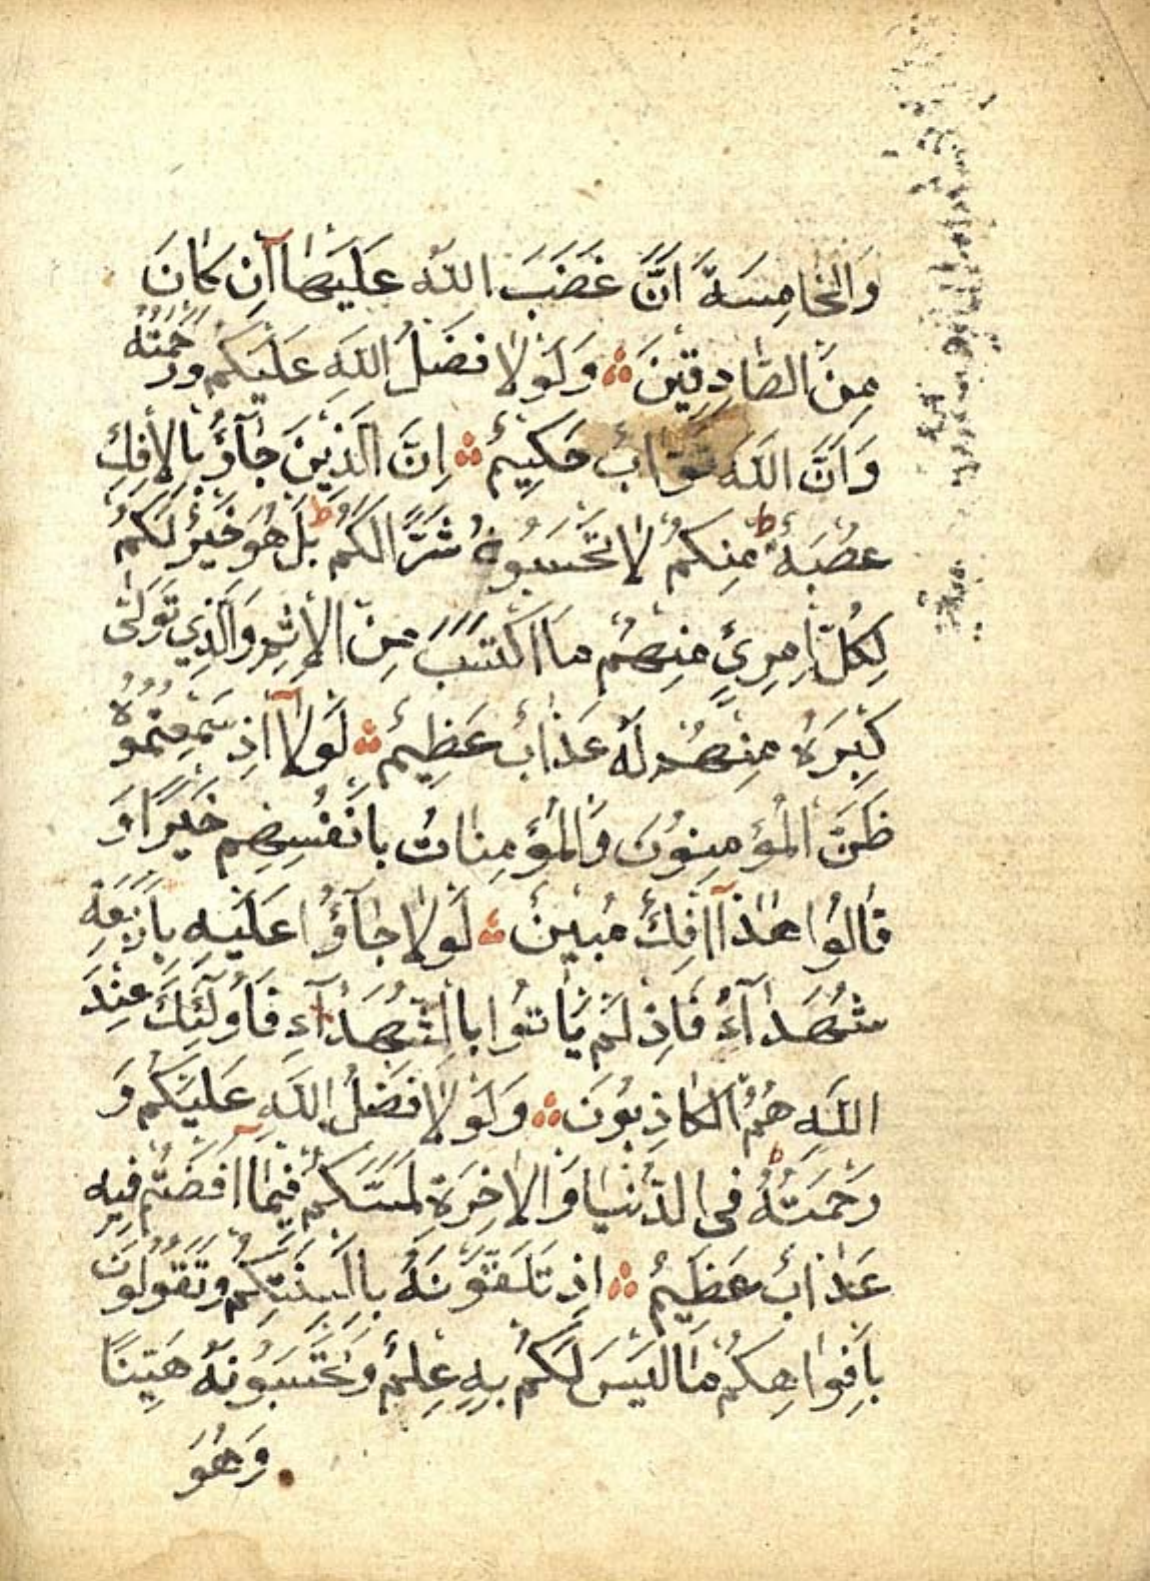 وَالْخَامِسَةَ اَنَّ غَضَبَ اللّٰهِ عَلَيْهَا آنِ كَانَ
مِنَ الصَّادِقِينَ ۞ وَلَوْلَا فَضْلُ اللّٰهِ عَلَيْكُمْ وَرَحْمَتُهُ
وَاَنَّ اللّٰهَ تَوَّابٌ حَكِيمٌ ۞ اِنَّ الَّذِينَ جَآؤُ بِالْاِفْكِ
عُصْبَةٌ مِنْكُمْ ط لَا تَحْسَبُوهُ شَرًّا لَكُمْ ط بَلْ هُوَ خَيْرٌ لَكُمْ
لِكُلِّ امْرِئٍ مِنْهُمْ مَا اكْتَسَبَ مِنَ الْاِثْمِ وَالَّذِي تَوَلّٰى
كِبْرَهُ مِنْهُمْ لَهُ عَذَابٌ عَظِيمٌ ۞ لَوْلَآ اِذْ سَمِعْتُمُوهُ
ظَنَّ الْمُؤْمِنُونَ وَالْمُؤْمِنَاتُ بِاَنْفُسِهِمْ خَيْرًا وَ
قَالُوا هٰذَآ اِفْكٌ مُبِينٌ ۞ لَوْلَا جَآؤُا عَلَيْهِ بِاَرْبَعَةِ
شُهَدَآءَ فَاِذْ لَمْ يَاْتُوا بِالشُّهَدَآءِ فَاُولٰٓئِكَ عِنْدَ
اللّٰهِ هُمُ الْكَاذِبُونَ ۞ وَلَوْلَا فَضْلُ اللّٰهِ عَلَيْكُمْ وَ
رَحْمَتُهُ ط فِي الدُّنْيَا وَالْاٰخِرَةِ لَمَسَّكُمْ فِيمَآ اَفَضْتُمْ فِيهِ
عَذَابٌ عَظِيمٌ ۞ اِذْ تَلَقَّوْنَهُ بِاَلْسِنَتِكُمْ وَتَقُولُونَ
بِاَفْوَاهِكُمْ مَا لَيْسَ لَكُمْ بِهِ عِلْمٌ وَتَحْسَبُونَهُ هَيِّنًا
وَهُوَ